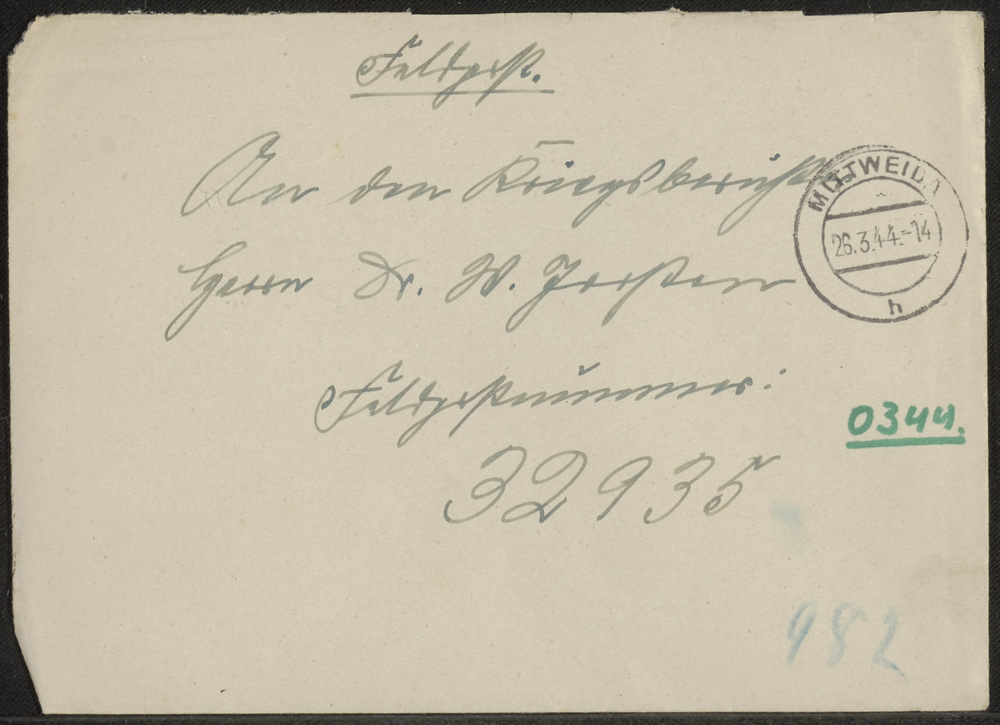 Feldpost.
An den Kriegsbericht
MITTWEIDA
26.3.44.-14
h
Herrn Dr. W. Jorsten
Feldpostnummer:
0344.
32935
982